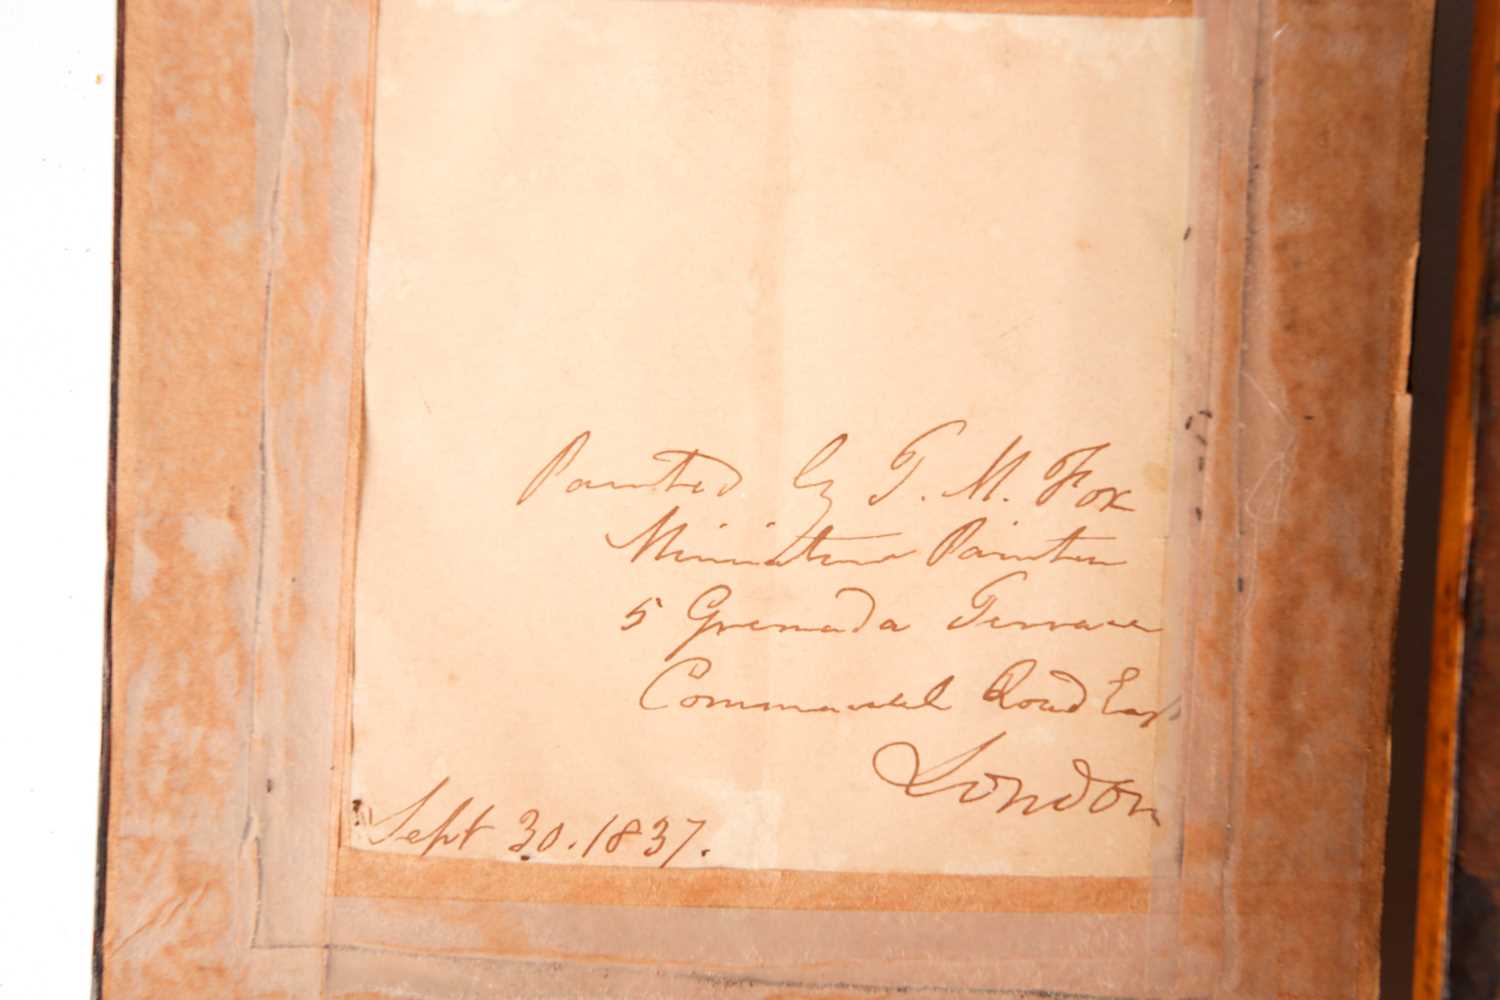 Painted by T. M. Fox
Miniature Painter
5 Grenada Terrace
Commercial Road East
London
Sept 30. 1837.